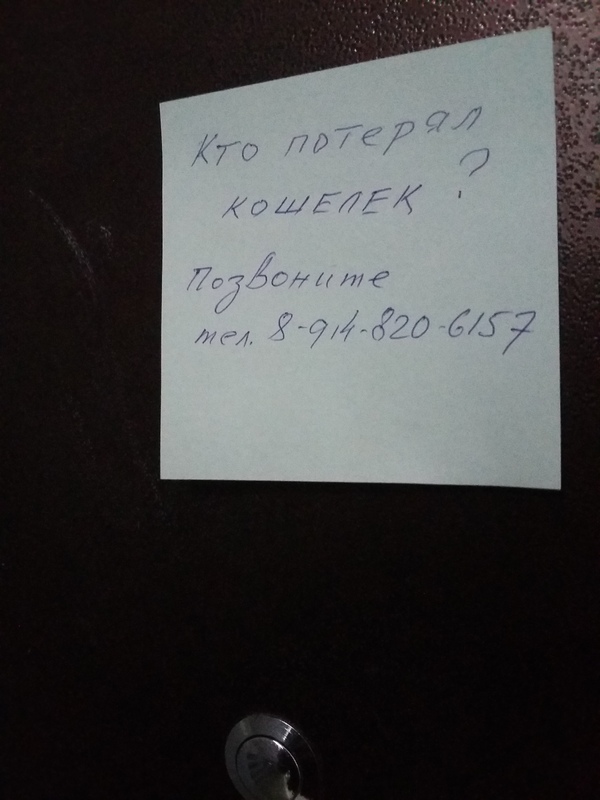 Кто потерял
кошелек ?
Позвоните
тел. 8-914-820-6157